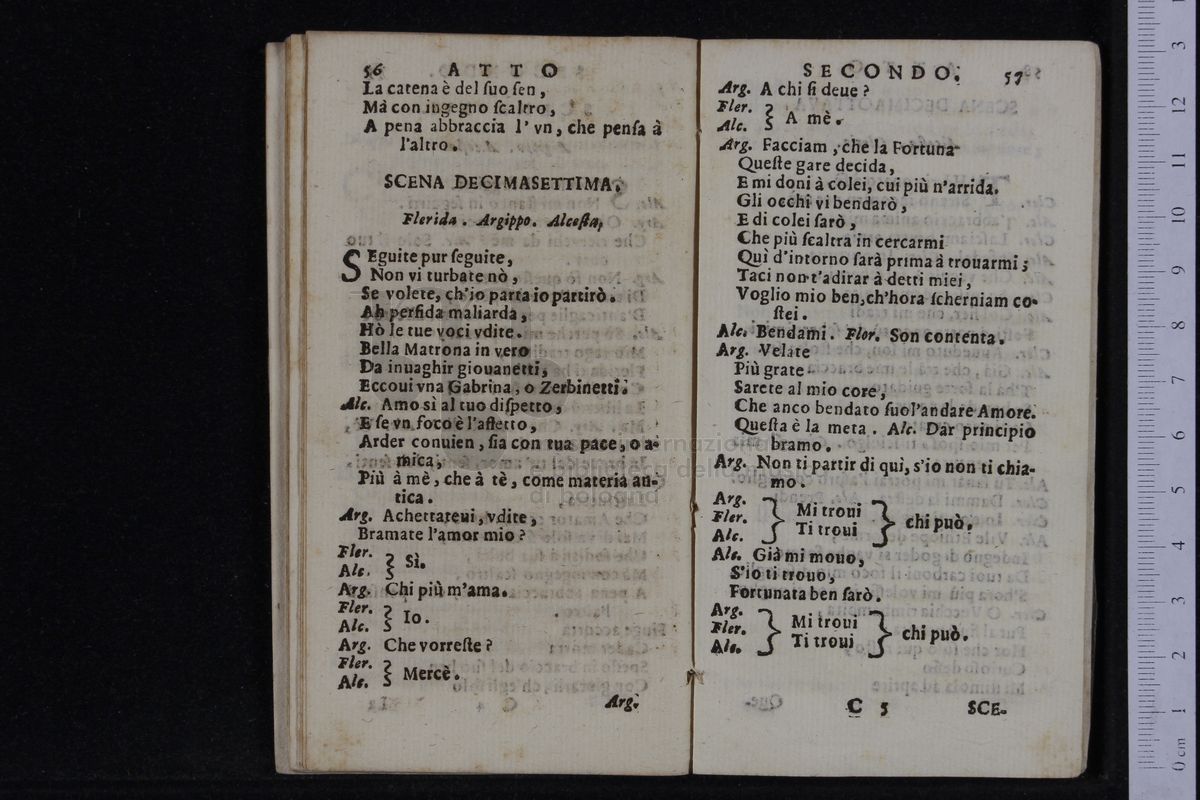 56 ATTO
La catena è del ſuo ſen,
Mà con ingegno ſcaltro,
A pena abbraccia l'vn, che penſa à
l'altro.
SCENA DECIMASETTIMA.
Flerida. Argippo. Alceſta,
SEguite pur ſeguite,
Non vi turbate nò,
Se volete, ch'io parta io partirò.
Ah perfida maliarda,
Hò le tue voci vdite.
Bella Matrona in vero
Da inuaghir giouanetti,
Eccoui vna Gabrina, o Zerbinetti.
Alc. Amo sì al tuo diſpetto,
E ſe vn foco è l'affetto,
Arder conuien, ſia con tua pace, o a-
mica,
Più à mè, che à tè, come materia an-
tica.
Arg. Achettateui, vdite,
Bramate l'amor mio?
Fler.
Alc. } Sì.
Arg. Chi più m'ama.
Fler.
Alc. } Io.
Arg. Che vorreſte?
Fler.
Alc. } Mercè.
Arg.
SECONDO. 57
Arg. A chi ſi deue?
Fler.
Alc. } A mè.
Arg. Facciam, che la Fortuna
Queſte gare decida,
E mi doni à colei, cui più n'arrida.
Gli occhi vi bendarò,
E di colei ſarò,
Che più ſcaltra in cercarmi
Quì d'intorno ſarà prima à trouarmi;
Taci non t'adirar à detti miei,
Voglio mio ben, ch'hora ſcherniam co-
ſtei.
Alc. Bendami. Flor. Son contenta.
Arg. Velate
Più grate
Sarete al mio core,
Che anco bendato ſuol'andare Amore.
Queſta è la meta. Alc. Dar principio
bramo.
Arg. Non ti partir di quì, s'io non ti chia-
mo.
Arg.
Fler. } Mi troui } chi può.
Alc. } Ti troui
Alc. Già mi mouo,
S'io ti trouo,
Fortunata ben ſarò.
Arg.
Fler. } Mi troui } chi può.
Alc. } Ti troui
C 5 SCE-